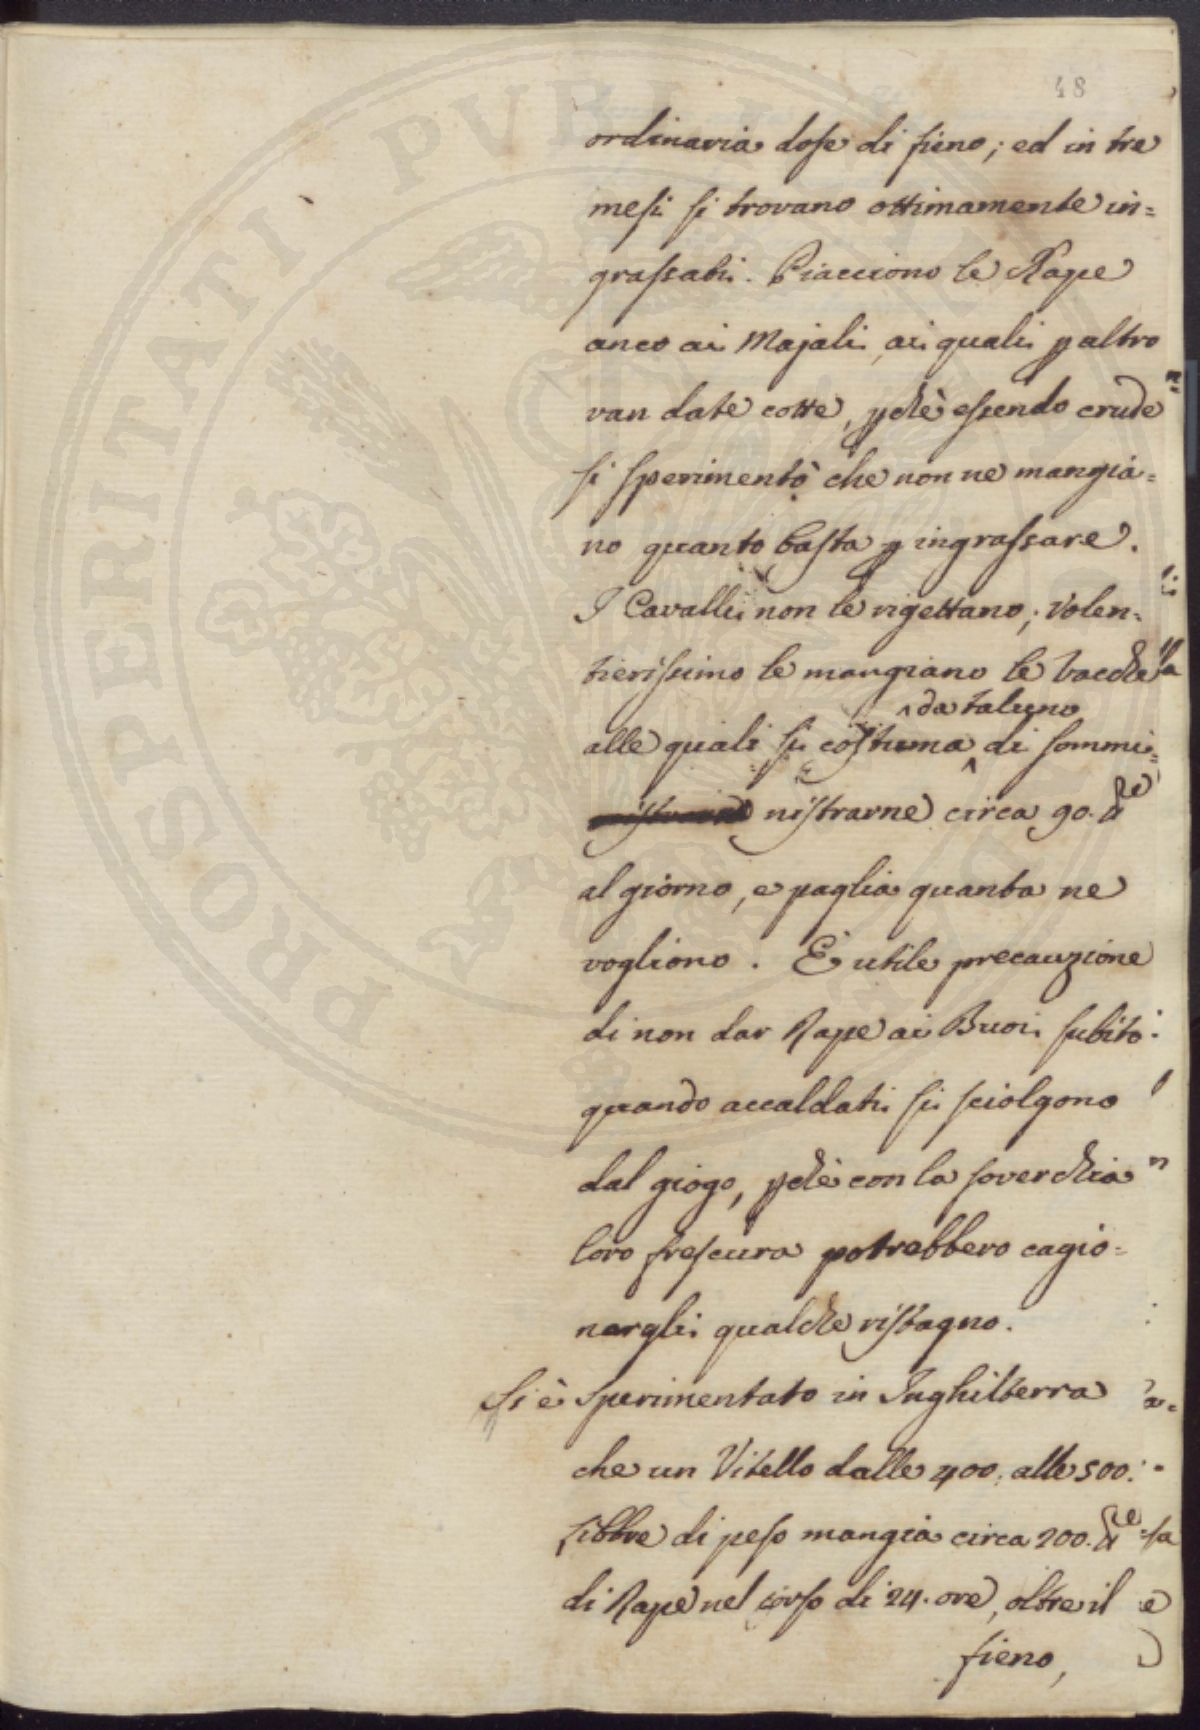 48
ordinaria dose di fieno; ed in tre
mesi si trovano ottimamente in=
grassati. Piacciono le Rape
anco ai Majali, ai quali p altro
van date cotte, pchè essendo crude
si sperimentò che non ne mangia=
no quanto basta p ingrassare.
I Cavalli non le rigettano; volen=
tierissimo le mangiano le Vacche
^da taluno
alle quali si costuma ^ di sommi=
nistrarne circa 90. lle
al giorno, e paglia quanta ne
vogliono. È utile precauzione
di non dar Rape ai Buoi subito
quando accaldati si sciolgono
dal giogo, pchè con la soverchia
loro frescura potrebbero cagio=
nargli qualche ristagno.
Si è sperimentato in Inghilterra
che un Vitello dalle 400. alle 500.
Libbre di peso mangia circa 200. lle
di Rape nel corso di 24. ore, oltre il
fieno,
PROSPERITATI PVBLICAE